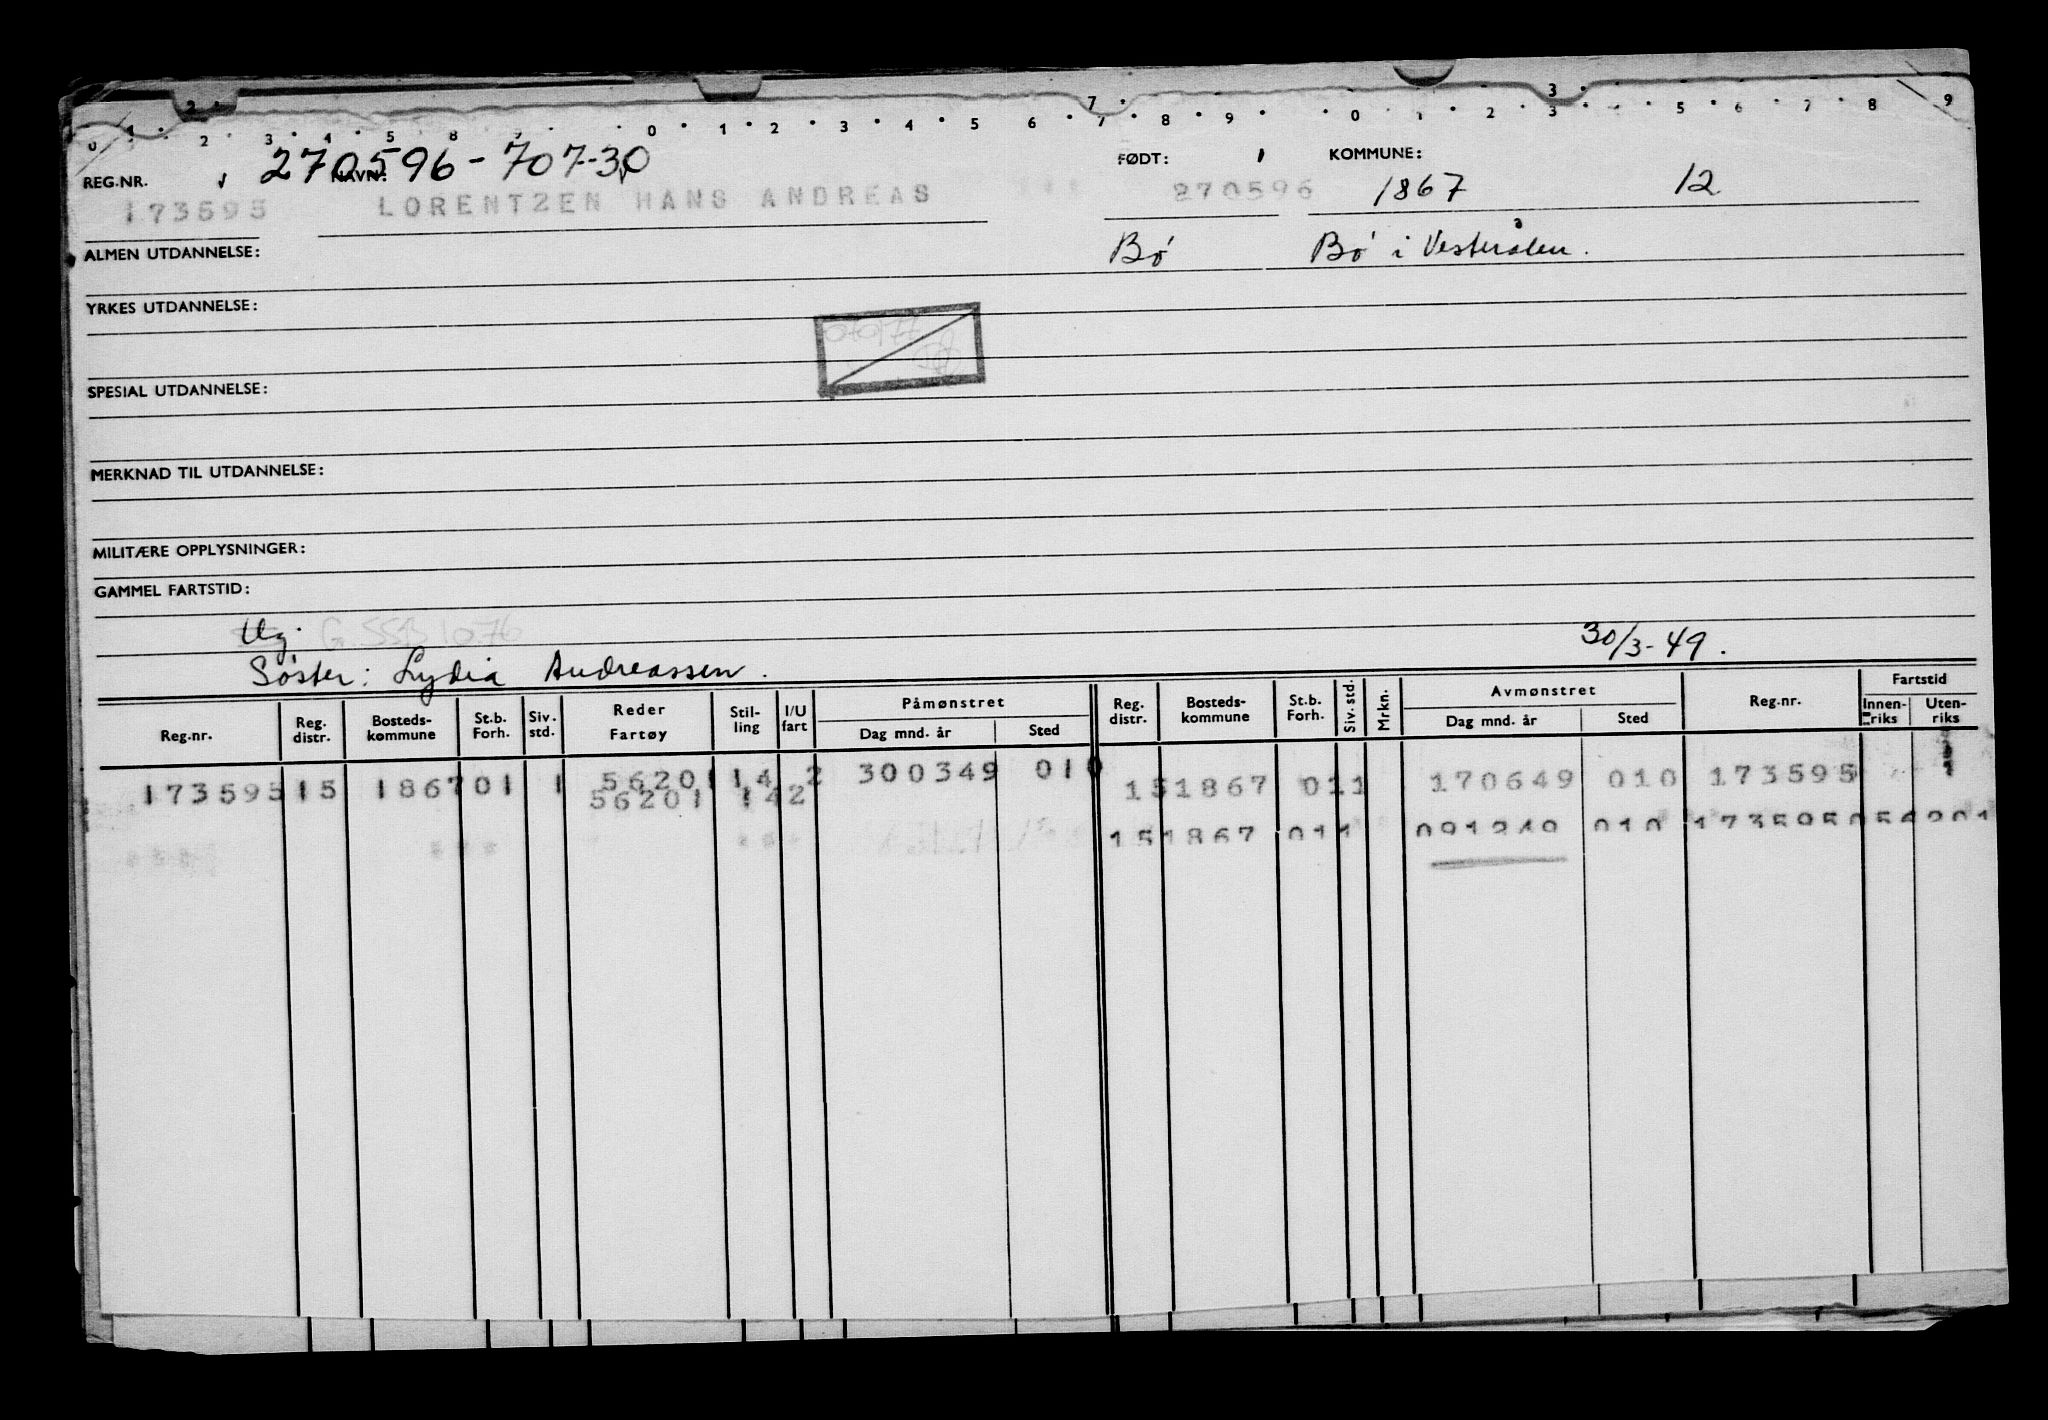 0 1 2 3 4 5 8 9 0 1 2 3 4 5 6 7 8 9 0 1 2 3 5 6 7 8 9
270596-707-30
REG.NR. NAVN: FØDT: KOMMUNE:
173595 LORENTZEN HANS ANDREAS 270596 1867 12
ALMEN UTDANNELSE: Bø Bø i Vesterålen.
YRKES UTDANNELSE:
SPESIAL UTDANNELSE:
MERKNAD TIL UTDANNELSE:
MILITÆRE OPPLYSNINGER:
GAMMEL FARTSTID:
Ug. G.SSB 1076 30/3-49.
Søster: Lydia Andreassen.
Reg.nr. Reg. distr. Bosteds- kommune St.b. Forh. Siv. std. Reder Fartøy Stil- ling I/U fart Påmønstret Dag mnd. år Sted Reg. distr. Bosteds- kommune St.b. Forh. Siv. std. Mrkn. Avmønstret Dag mnd. år Sted Reg.nr. Fartstid Innen- riks Uten- riks
173595 15 1867 01 1 56201 14 2 300349 010 15 1867 01 1 170649 010 173595
56201 14 2
15 1867 01 1 091249 010 173595